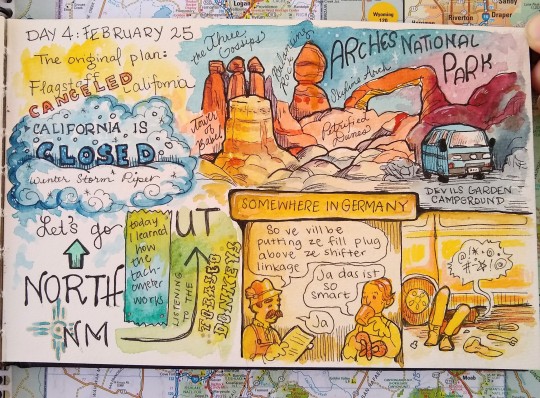 DAY 4: FEBRUARY 25
The original plan:
Flagstaff
California
CANCELED
CALIFORNIA IS
CLOSED
Winter Storm Piper
Let's go
NORTH
NM
UT
today
I learned
how
the
tach-
ometer
works
LISTENING
TO THE
DONKEYS
the Three
Gossips
Balancing
Rock
ARCHES NATIONAL
PARK
Skyline Arch
Tower
of
Babel
Petrified
Dunes
DEVILS GARDEN
CAMPGROUND
SOMEWHERE IN GERMANY
So ve vill be
putting ze fill plug
above ze shifter
linkage
Ja das ist
so
smart
Ja
@!*@
#*!@
Logan
Wyoming
Riverton
Draper
Sandy
Moab